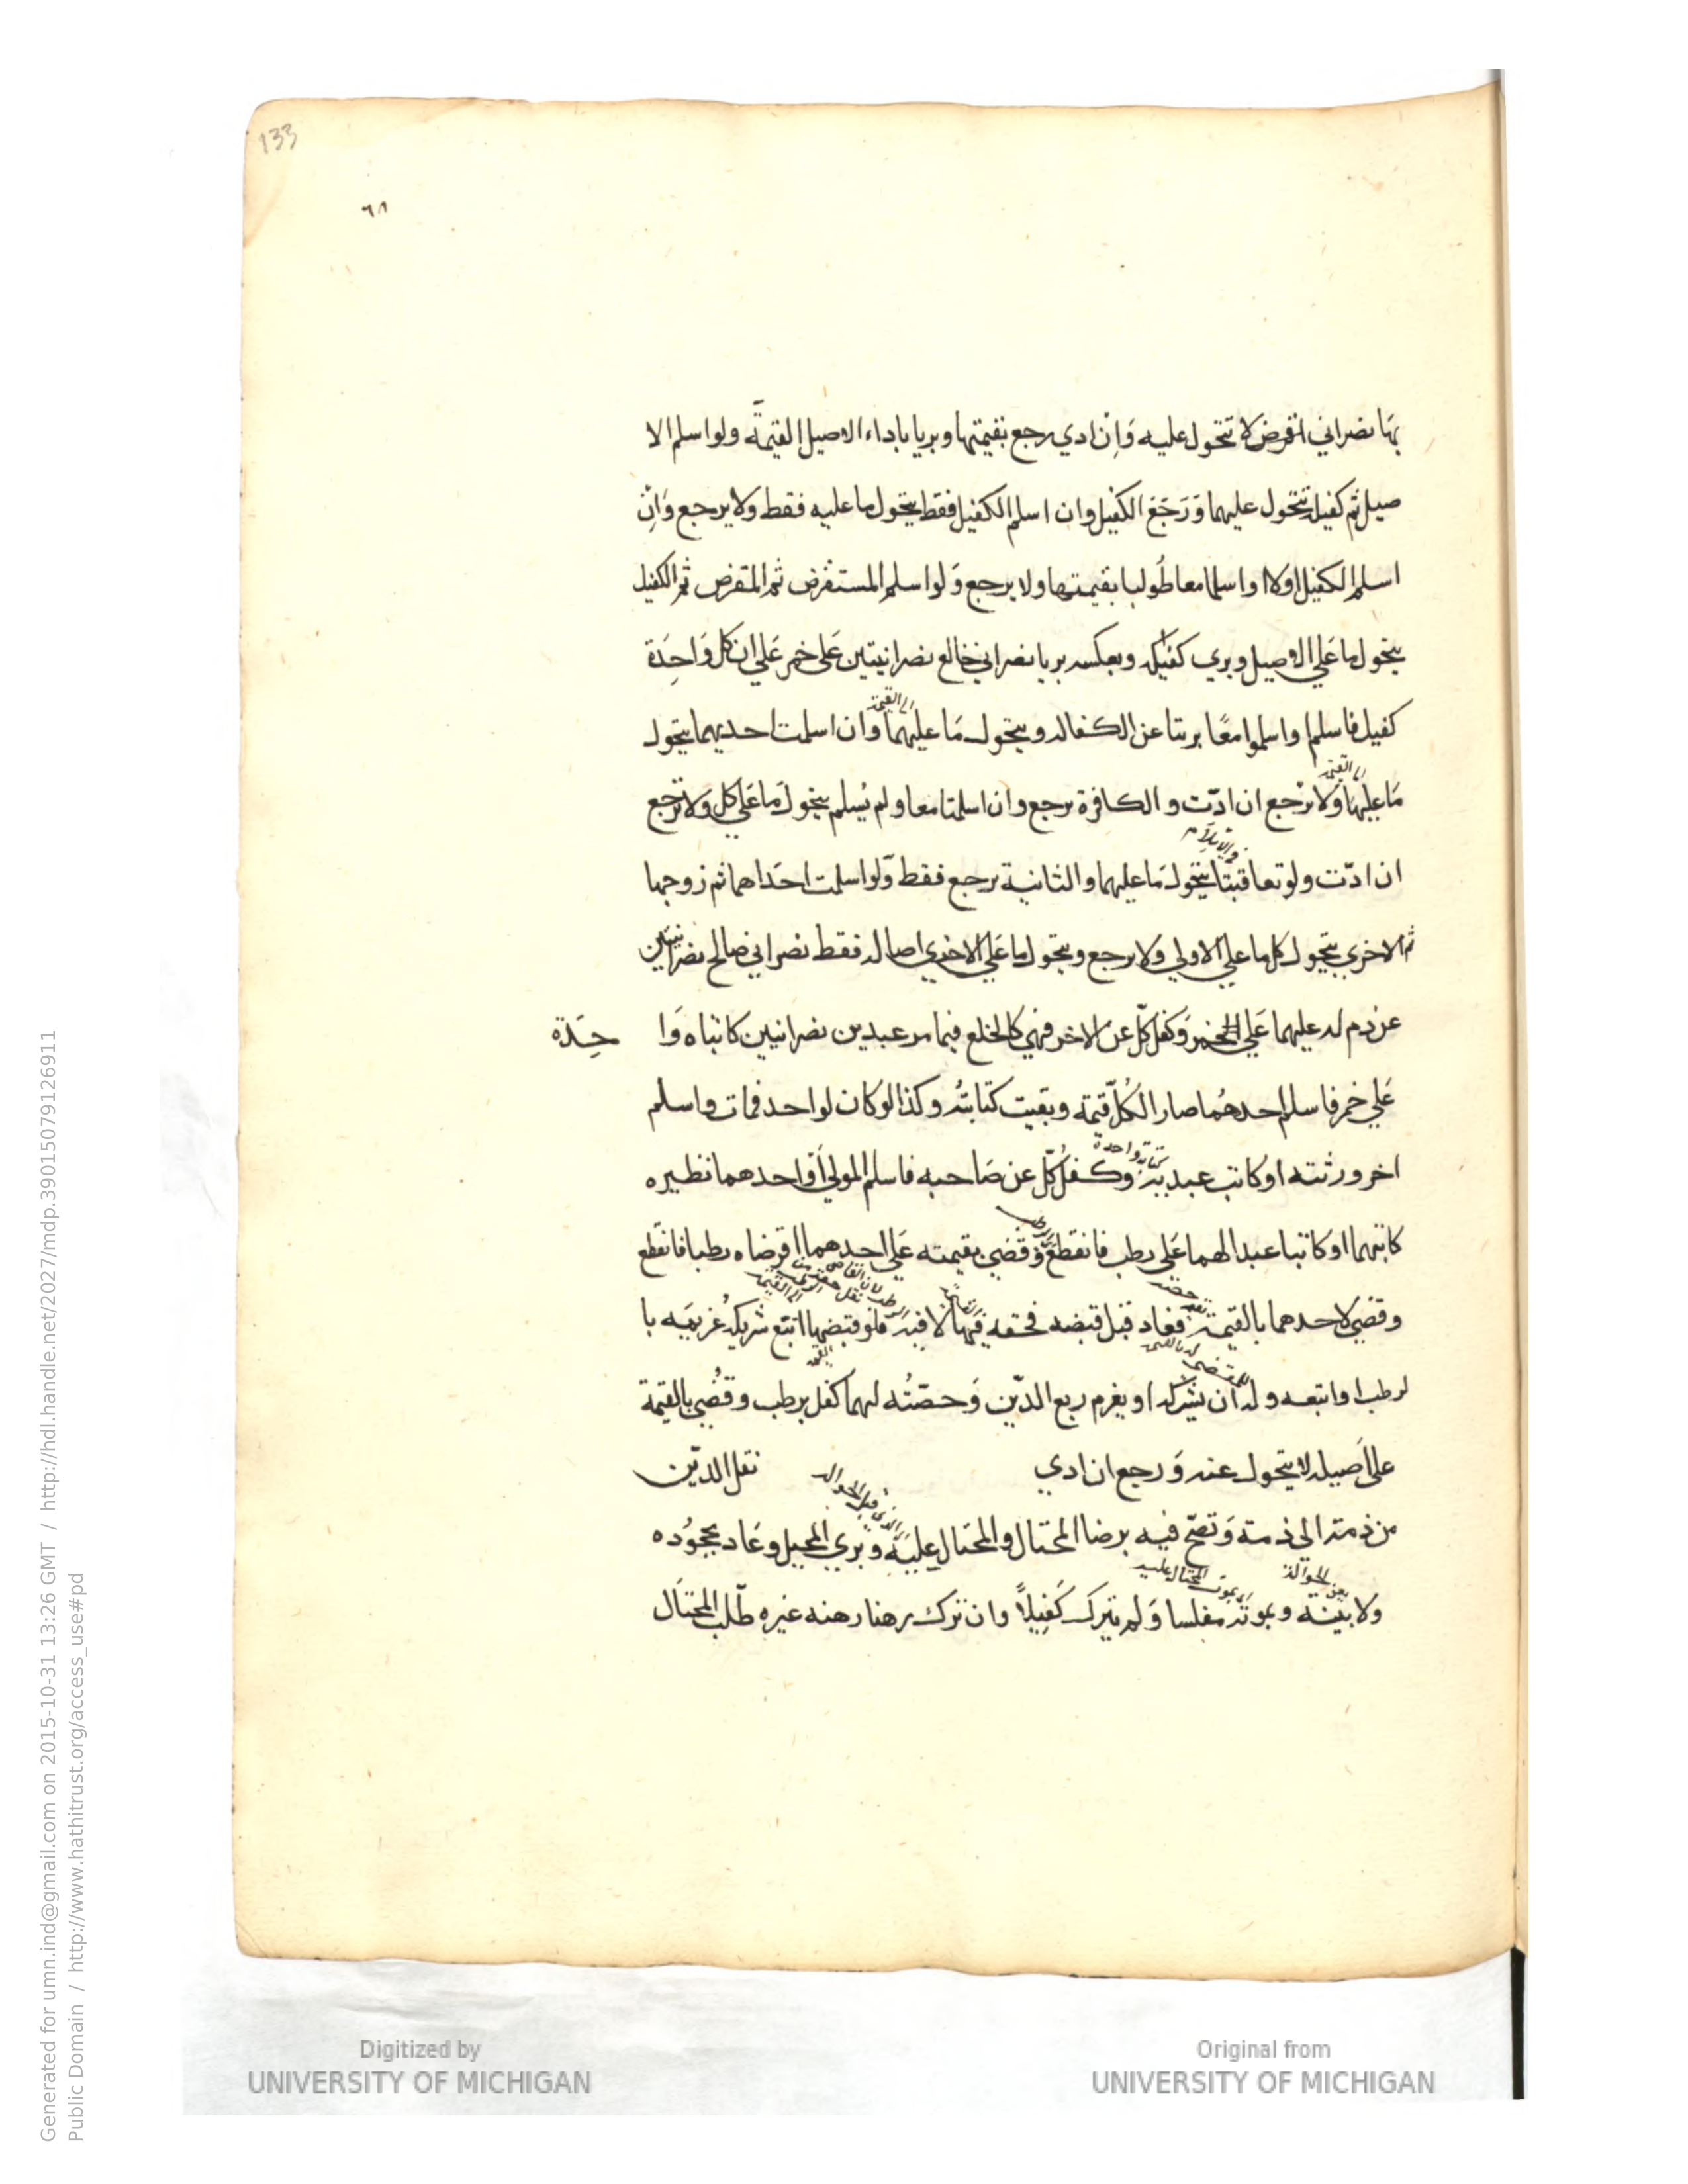 133
٦٨
بها نصراني اقرض لا تتحول عليه وان ادي رجع بقيمتها وبريا باداء الاصيل القيمة ولو اسلم الا
صيل ثم كفيله تتحول عليهما ورجع الكفيل وان اسلم الكفيل فقط يتحول ما عليه فقط ولا يرجع وان
اسلم الكفيل اولا او اسلما معا طولبا بقيمتها ولا يرجع ولو اسلم المستقرض ثم المقرض ثم الكفيل
يتحول ما علي الاصيل وبري كفيله وبعكسه بريا نصراني خالع نصرانيتين علي خمر علي ان كل واحدة
كفيل فاسلم او اسلموا معا برتا عن الكفاله ويتحول ما عليهما وان اسلمت احديهما يتحول
الي القيمة
ما عليها ولا ترجع ان ادت والكافرة ترجع وان اسلمتا معا ولم يسلم يتحول ما علي كل ولا ترجع
الي القيمة
ان ادت ولو تعاقبتا يتحول ما عليهما والثانية ترجع فقط ولو اسلمت احداهما ثم زوجها
في الاسلام
ثم الاخري يتحول كل ما علي الاولي ولا يرجع ويتحول ما علي الاخري اصاله فقط نصراني صالح نصرانيين
عن دم له عليهما علي الخمر وكفل كل عن الاخر فهي كالخلع فيما مر عبدين نصرانيين كاتباه وا حدة
علي خمر فاسلم احدهما صار الكل قيمة وبقيت كتابته وكذا لو كان لواحد فمات واسلم
اخر ورثته او كاتب عبديه وكفل كل عن صاحبه فاسلم المولي او احدهما نظيره
كتابة واحدة
كاتبهما او كاتبا عبدا لهما علي رطب فانقطع وقضي بقيمته علي احدهما اقرضاه رطبا فانقطع
وقضي لاحدهما بالقيمة فعاد قبل قبضه فحقه فيها لا فيه فلو قبضها اتبع شريكه غريمه با
لرطب او اتبعه وله ان يشركه او يغرم ربع الدين وحصته لهما كفل برطب وقضي بالقيمة
علي اصيله لا يتحول عنه ورجع ان ادي نقل الدين
من ذمته الي ذمته وتصح فيه برضا المحتال والمحتال عليه وبري المحيل وعاد بجحوده
ولا بينة وبموته مفلسا ولم يترك كفيلا وان ترك رهنا رهنه غيره طلب المحتال
المحتال عليه
Generated for umn.ind@gmail.com on 2015-10-31 13:26 GMT / http://hdl.handle.net/2027/mdp.39015079126911
Public Domain / http://www.hathitrust.org/access_use#pd
Digitized by
UNIVERSITY OF MICHIGAN
Original from
UNIVERSITY OF MICHIGAN